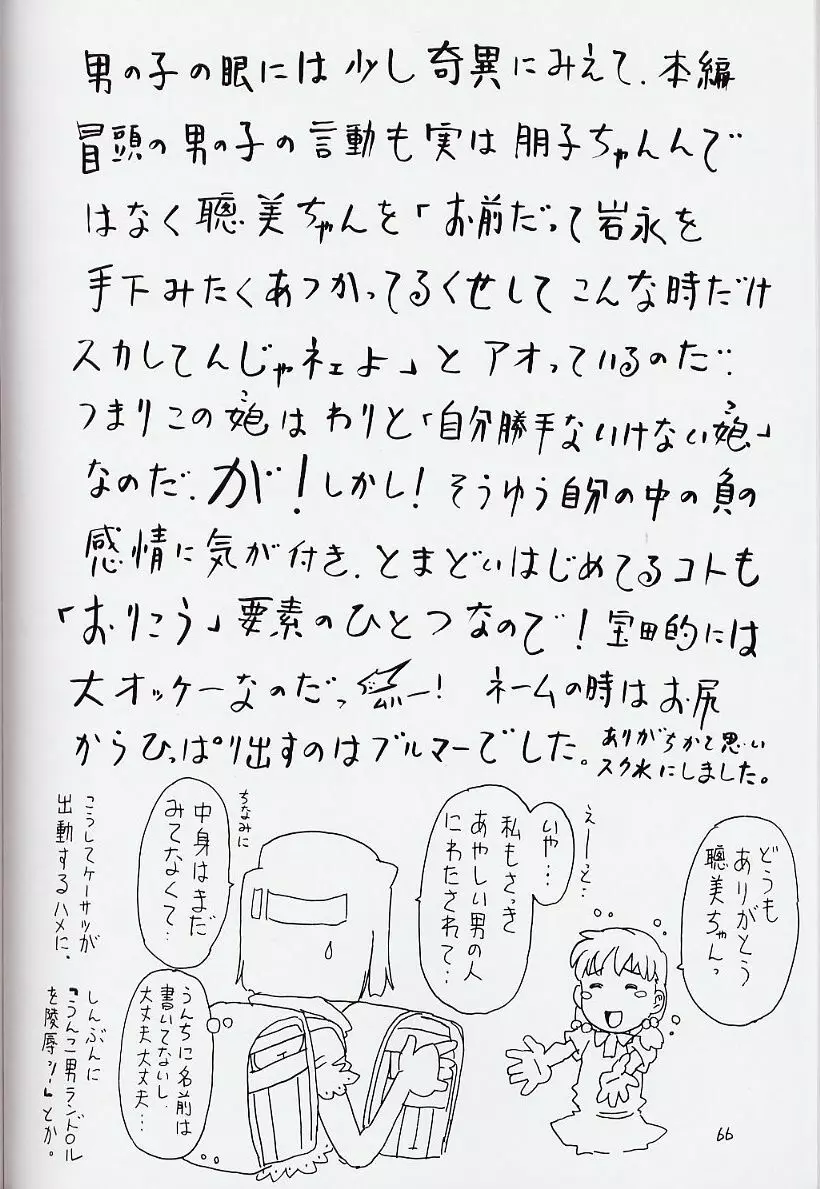 男の子の眼には少し奇異にみえて、本編
冒頭の男の子の言動も実は朋子ちゃんんで
はなく聰美ちゃんを「お前だって岩永を
手下みたくあつかってるくせしてこんな時だけ
スカしてんじゃネェよ」とアオっているのだ。
つまりこの娘はわりと「自分勝手ないけない娘」
なのだ、が!しかし!そうゆう自分の中の負の
感情に気が付き、とまどいはじめてるコトも
「おりこう」要素のひとつなので!宝田的には
大オッケーなのだっ ー!ネームの時はお尻
からひっぱり出すのはブルマーでした。ありがちかと思い
スク水にしました。
どうも
ありがとう
聰美ちゃんっ
えーっと…
いや…
私もさっき
あやしい男の人
にわたされて…
ちなみに
中身はまだ
みてなくて…
うんちに名前は
書いてないし、
大丈夫大丈夫…
こうしてケーサツが
出動するハメに。
しんぶんに
「うんこ男ランドル
を陵辱ッ!」とか。
66